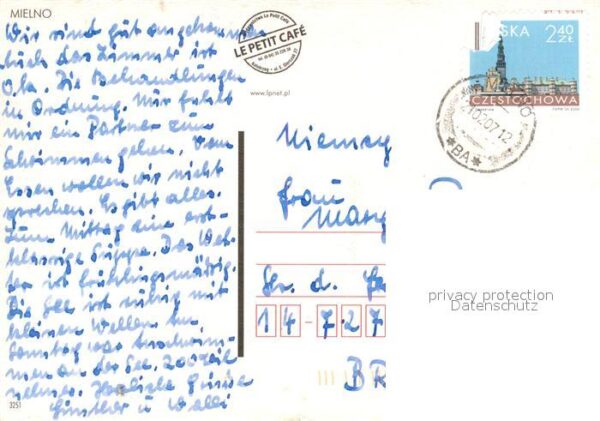 MIELNO
Wir sind gut angekommen
auch das Zimmer ist
O.k. Die Behandlungen
in Ordnung. Mir fehlt
nur ein Partner zum
Schwimmen gehen. Vom
Essen wollen wir nicht
sprechen. Es gibt alles.
Zum Mittag eine erst-
klassige Suppe. Das Wet-
ter ist frühlingsmäßig.
Die See ist ruhig mit
kleinen Wellen. Am
Samstag war
an der See. 200
nehmer. Herzliche Grüße
Günther u Walli
3251
LE PETIT CAFÉ
www.lpnet.pl
Niemcy
Frau
Str. d.
14-727
BR
SKA 2,40 ZŁ
CZĘSTOCHOWA
210207.12
*BA*
privacy protection
Datenschutz